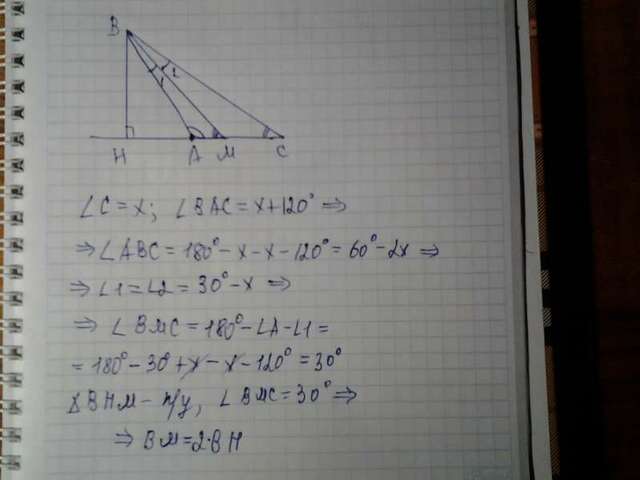 B
1 2
H A M C
∠C = x; ∠BAC = x+120° ⇒
⇒ ∠ABC = 180° - x - x - 120° = 60° - 2x ⇒
⇒ ∠1 = ∠2 = 30° - x ⇒
⇒ ∠BMC = 180° - ∠A - ∠1 =
= 180° - 30° + x - x - 120° = 30°
△BHM - п/у, ∠BMC = 30° ⇒
⇒ BM = 2·BH